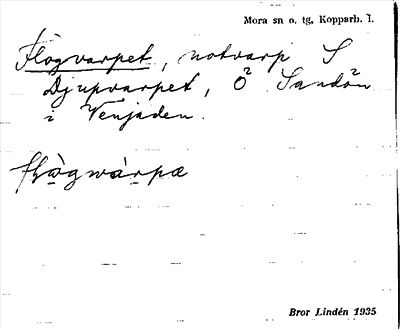 Mora sn o. tg, Kopparb. l.
Flogvarpet, notvarp S
Djupvarpet, Ö Sandön
i Venjaden.
Bror Lindén 1935